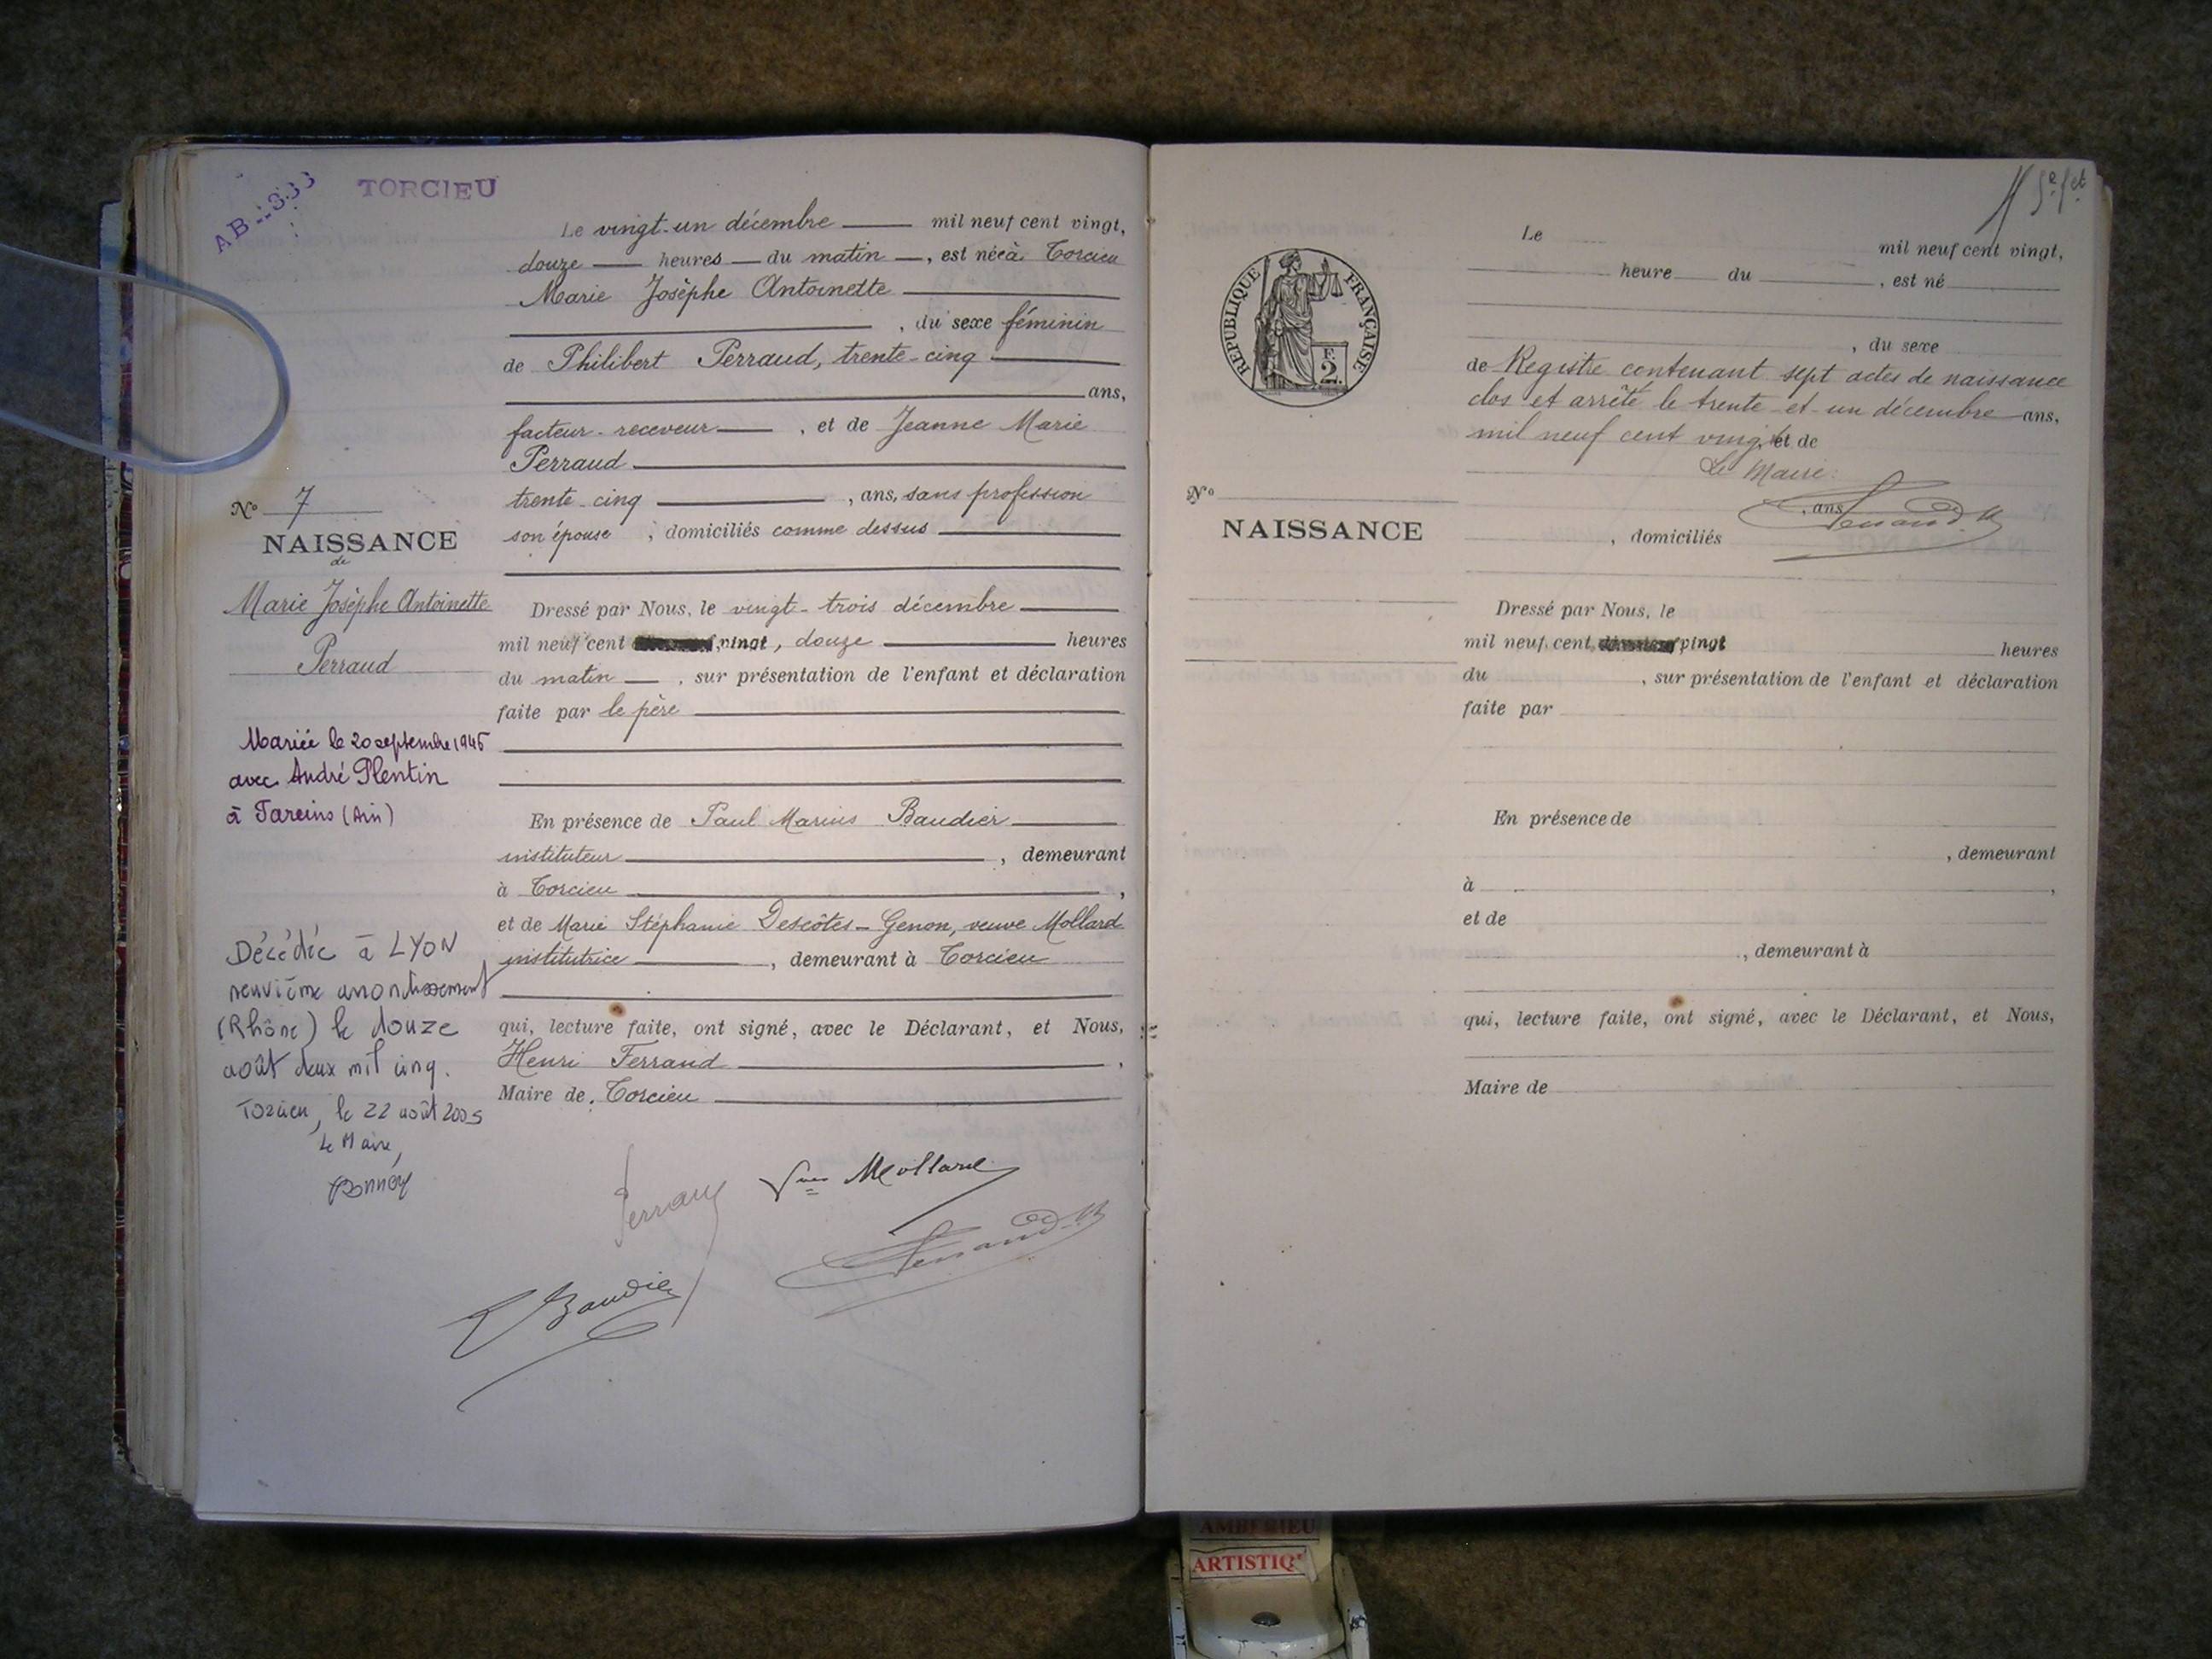 AB
TORCIEU
Le vingt-un décembre mil neuf cent vingt,
douze heures du matin, est née à Torcieu
Marie Josèphe Antoinette
, du sexe féminin
de Philibert Perraud, trente-cinq
ans,
facteur-receveur, et de Jeanne Marie
Perraud
trente-cinq, ans, sans profession
son épouse, domiciliés comme dessus
Dressé par Nous, le vingt-trois décembre
mil neuf cent vingt, douze heures
du matin, sur présentation de l'enfant et déclaration
faite par le père
En présence de Paul Marius Baudier
instituteur, demeurant
à Torcieu,
et de Marie Stéphanie Descôtes-Genon, veuve Mollard
institutrice, demeurant à Torcieu
qui, lecture faite, ont signé, avec le Déclarant, et Nous,
Henri Ferrand,
Maire de Torcieu
Perraud
Vve Mollard
Ferrand
Baudier
N° 7
NAISSANCE
de
Marie Josèphe Antoinette
Perraud
Mariée le 20 septembre 1945
avec André Plentin
à Fareins (Ain)
Décédée à LYON
neuvième arrondissement
(Rhône) le douze
août deux mil cinq.
Torcieu, le 22 août 2005
Le Maire,
REPUBLIQUE FRANÇAISE
F.
2.
N°
NAISSANCE
Le mil neuf cent vingt,
heure du, est né
, du sexe
de Registre contenant sept actes de naissance
clos et arrêté le trente-et-un décembre ans,
mil neuf cent vingt et de
Le Maire:
, ans
Ferrand
, domiciliés
Dressé par Nous, le
mil neuf cent vingt heures
du, sur présentation de l'enfant et déclaration
faite par
En présence de
, demeurant
à,
et de
, demeurant à
qui, lecture faite, ont signé, avec le Déclarant, et Nous,
Maire de
AMBERIEU
ARTISTIQ